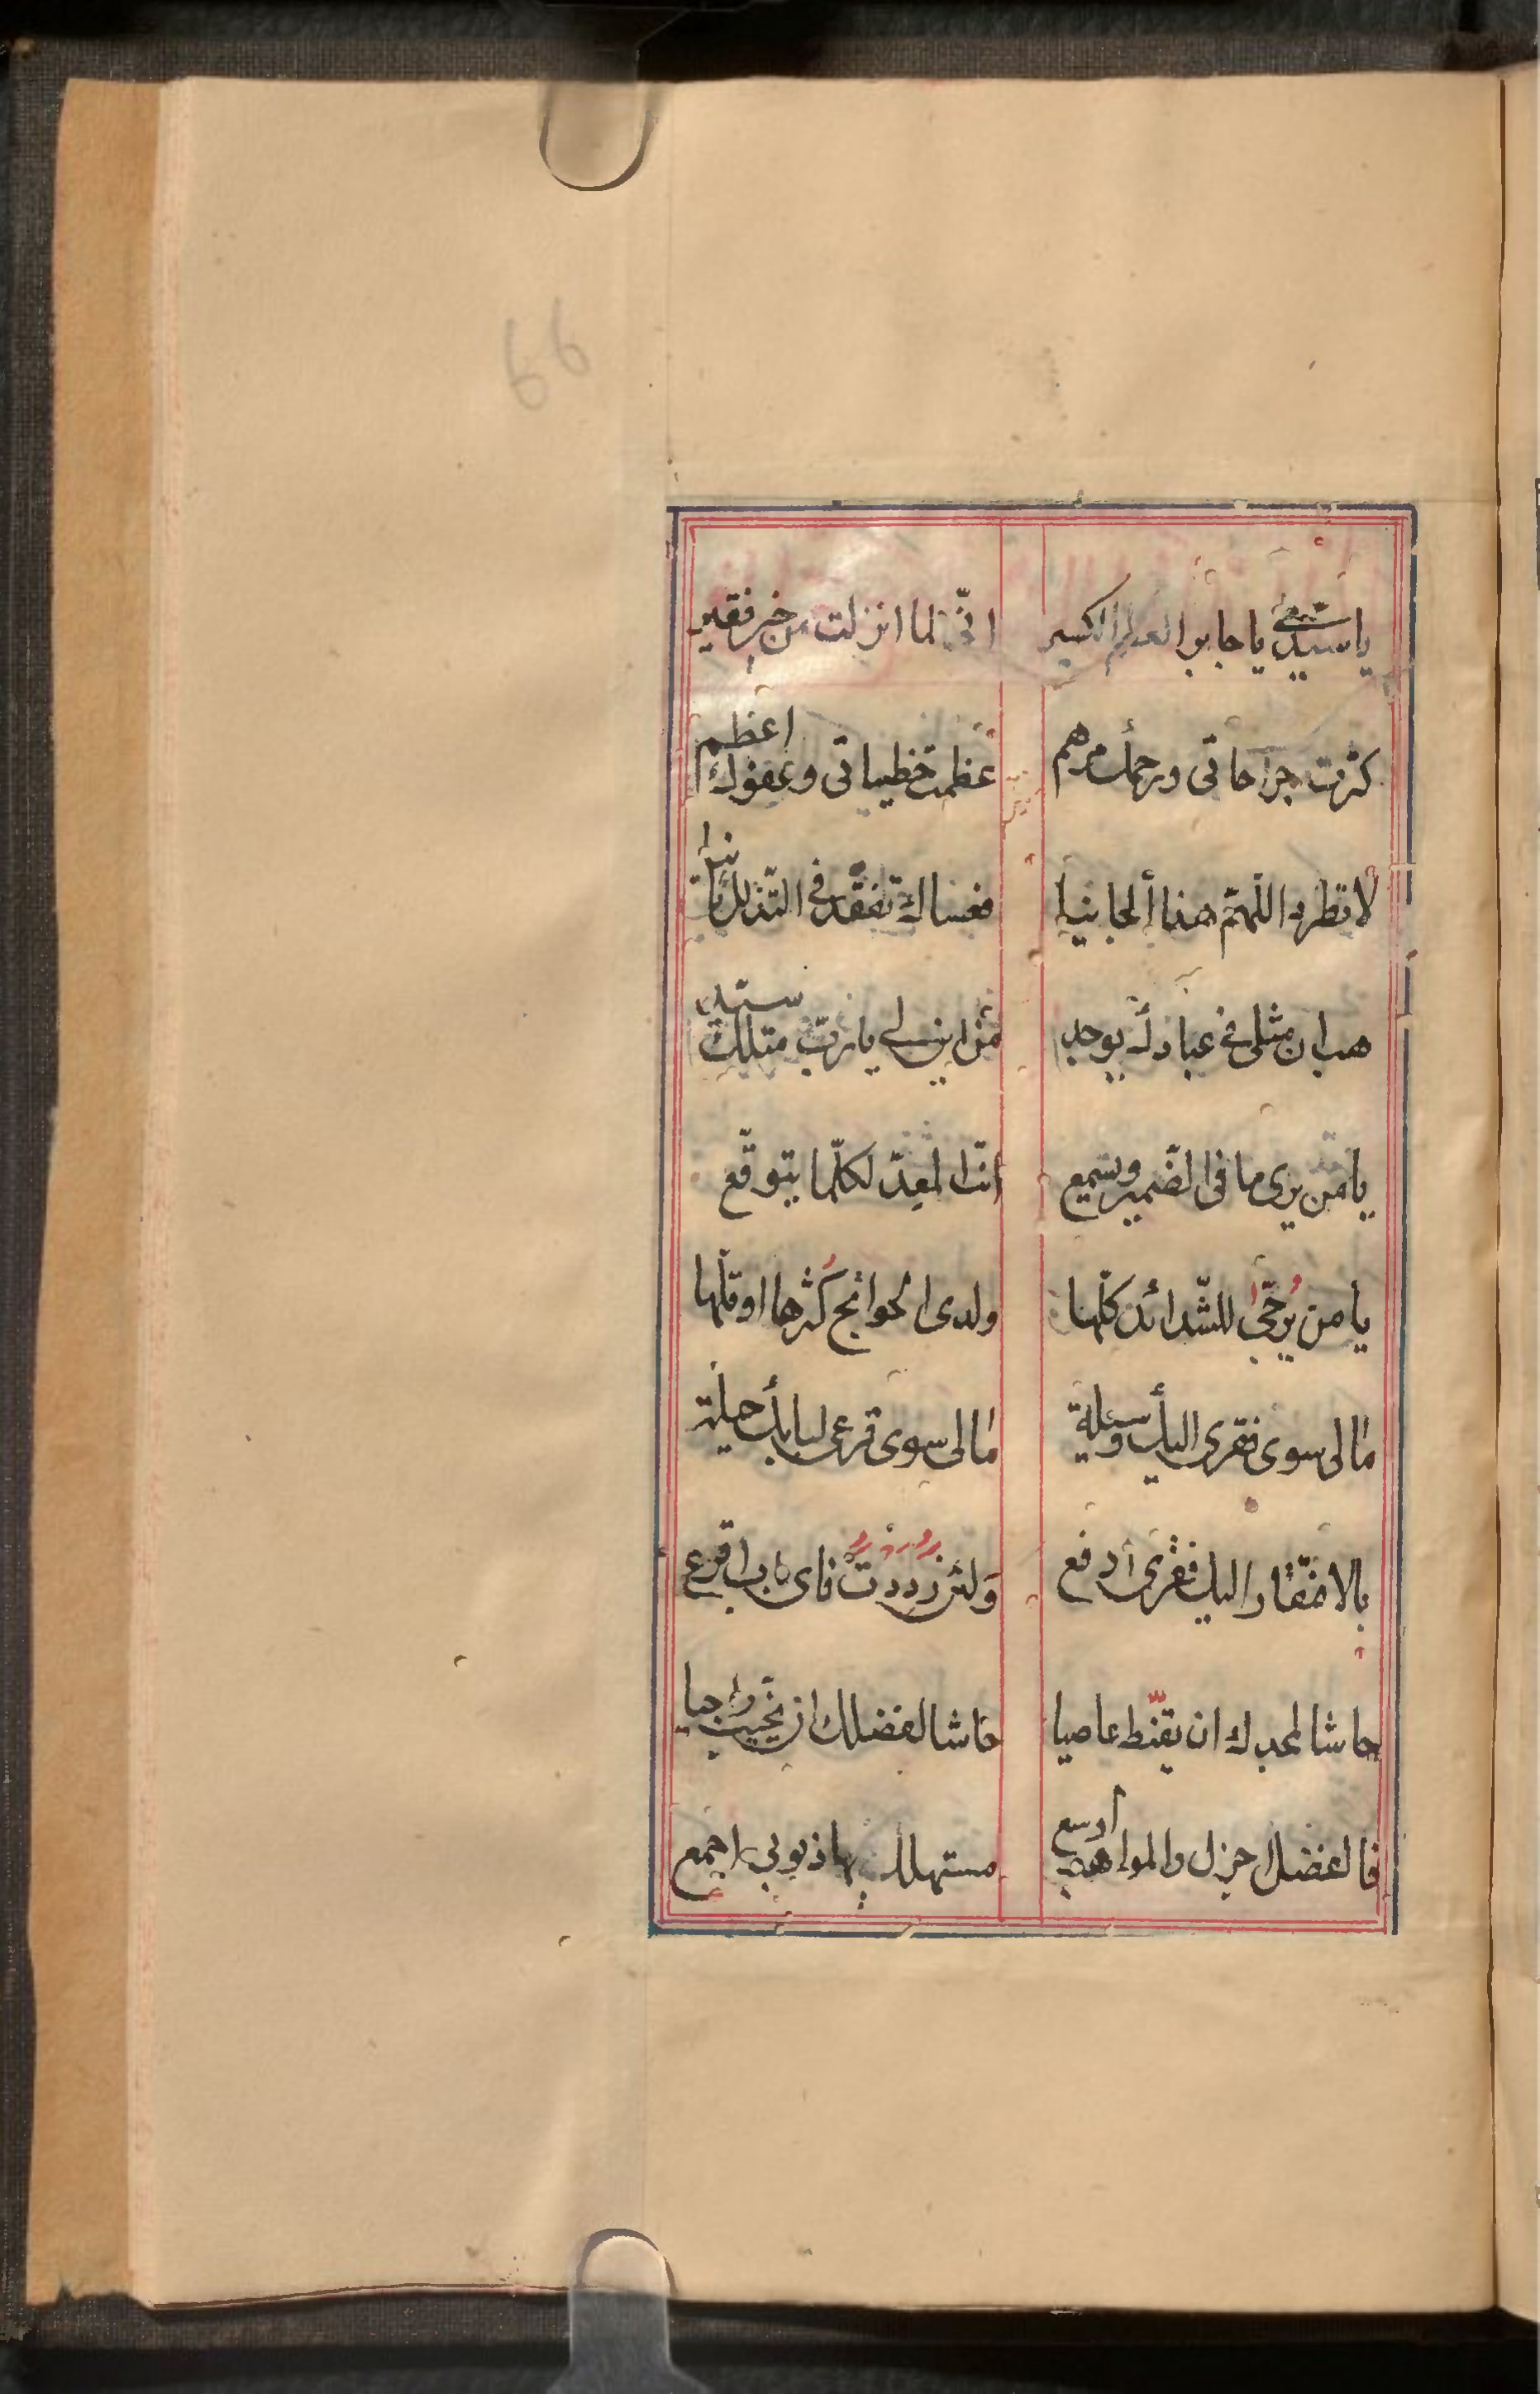 يا سيدى يا جابر العظم الكسير انّى لما انزلت من خير فقير
كثرت جراحاتى ورحمتك مرهم عظمت خطيئاتى وعفوك اعظم
لا تطرد اللّهمّ هذا الجانيا فعساك تفقّد فى التّذلل
هب ان مثلى فى عبادك يوجد من اين لى يا ربّ مثلك سيّد
يا من يرى ما فى الضّمير ويسمع انت المعدّ لكلّ ما يتوقّع
يا من يُرجّى للشّدائد كلّها ولدى الحوائج كُثرها او قلّها
ما لى سوى فقرى اليك وسيلة ما لى سوى قرعى لبابك حيلة
بالافتقار اليك فقرى أدفع وَلئن رددت فاى باب اقرع
حاشا لمجدك ان تقنّط عاصيا حاشا لفضلك ان تخيّب راجيا
فالفضل اجزل والمواهب أوسع مستهلك بها ذنوبى اجمع